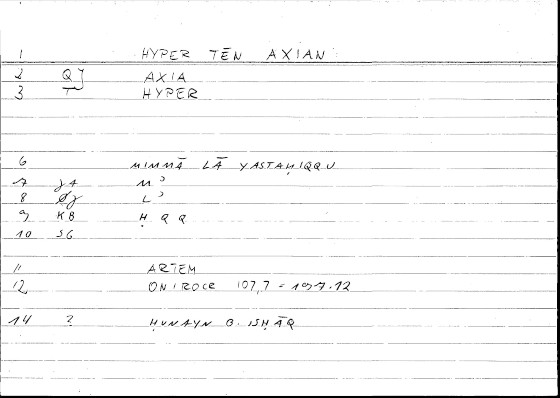 1 HYPER TĒN AXIAN
2 QJ AXIA
3 T HYPER
6 MIMMĀ LĀ YASTAḤIQQU
7 JA Mʾ
8 ØJ Lʾ
9 KB ḤQQ
10 SG
11 ARTEM
12 ONIROCR 107,7 = 197.12
14 ? ḤUNAYN B. ISḤĀQ